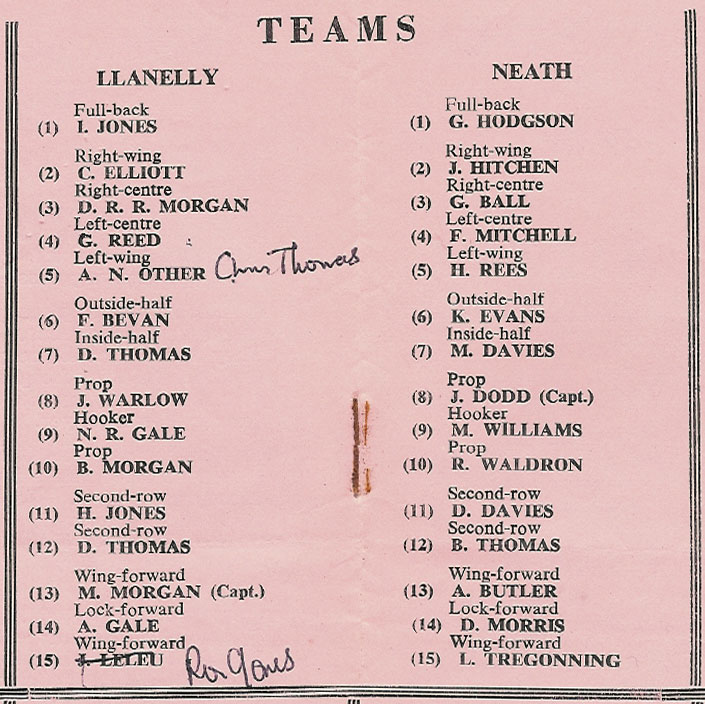 TEAMS
LLANELLY
Full-back
(1) I. JONES
Right-wing
(2) C. ELLIOTT
Right-centre
(3) D. R. R. MORGAN
Left-centre
(4) G. REED
Left-wing
(5) A. N. OTHER Chris Thomas
Outside-half
(6) F. BEVAN
Inside-half
(7) D. THOMAS
Prop
(8) J. WARLOW
Hooker
(9) N. R. GALE
Prop
(10) B. MORGAN
Second-row
(11) H. JONES
Second-row
(12) D. THOMAS
Wing-forward
(13) M. MORGAN (Capt.)
Lock-forward
(14) A. GALE
Wing-forward
(15) J. LELEU Ron Jones
NEATH
Full-back
(1) G. HODGSON
Right-wing
(2) J. HITCHEN
Right-centre
(3) G. BALL
Left-centre
(4) F. MITCHELL
Left-wing
(5) H. REES
Outside-half
(6) K. EVANS
Inside-half
(7) M. DAVIES
Prop
(8) J. DODD (Capt.)
Hooker
(9) M. WILLIAMS
Prop
(10) R. WALDRON
Second-row
(11) D. DAVIES
Second-row
(12) B. THOMAS
Wing-forward
(13) A. BUTLER
Lock-forward
(14) D. MORRIS
Wing-forward
(15) L. TREGONNING